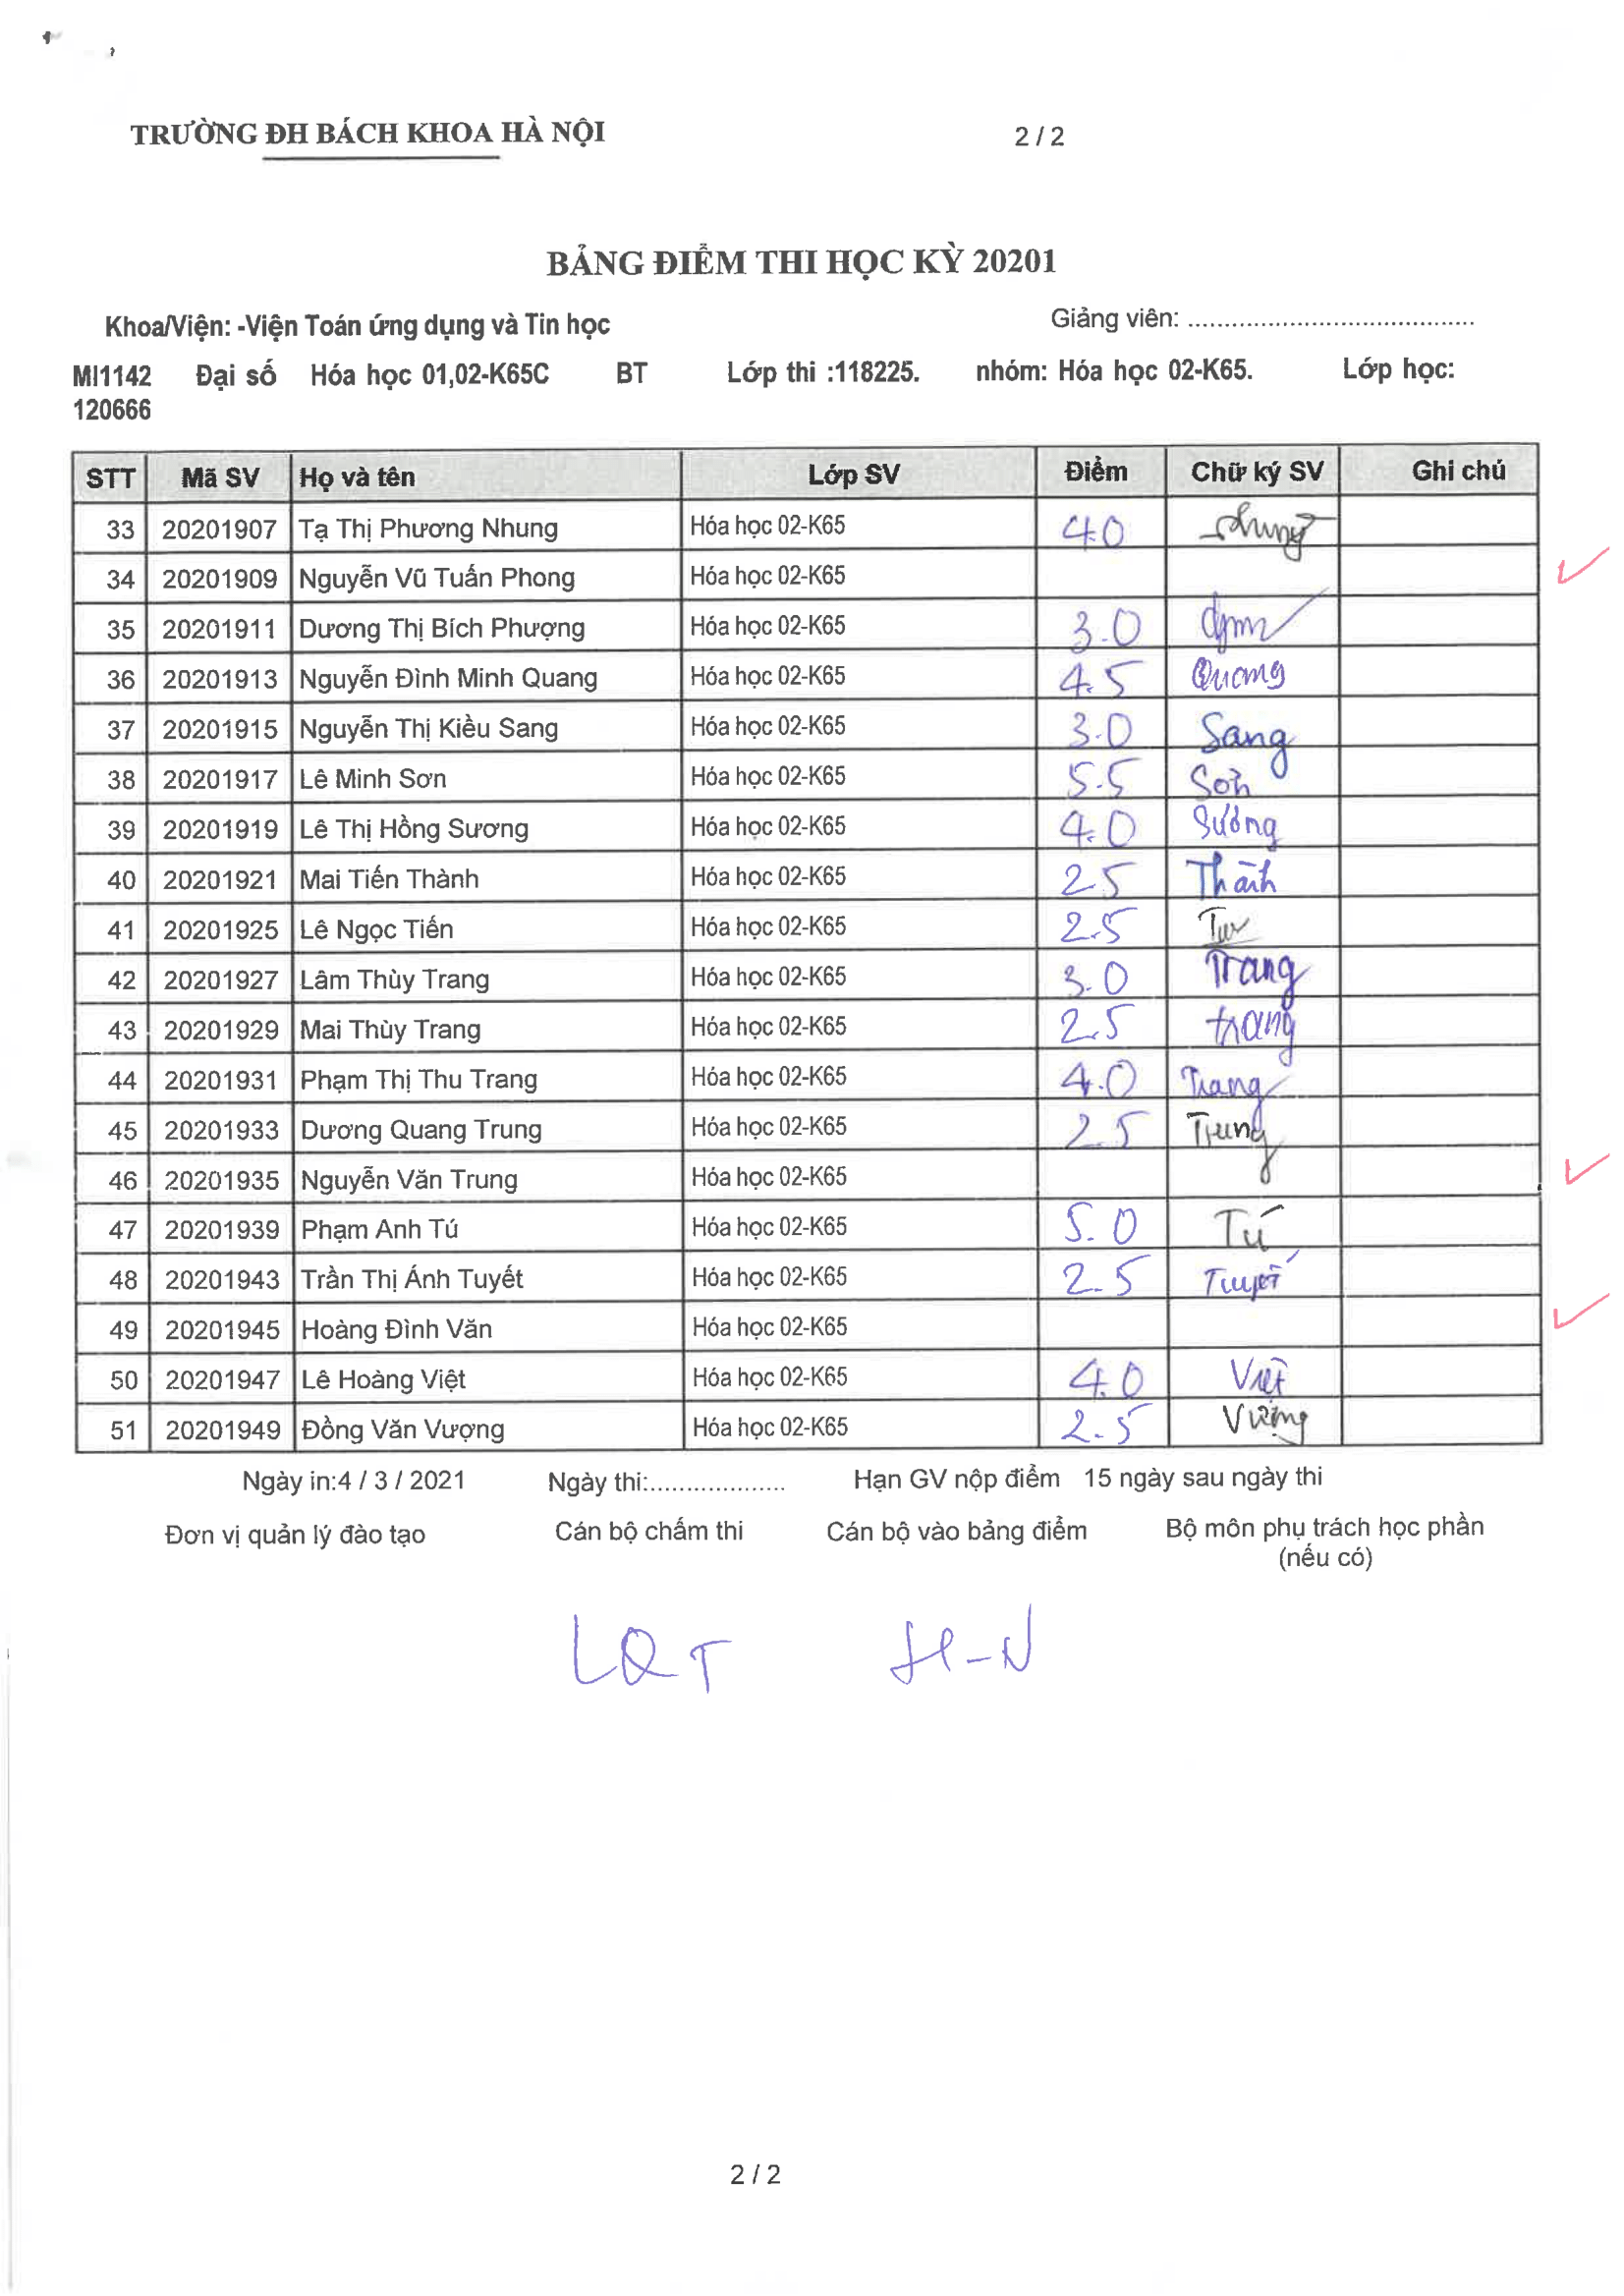 TRƯỜNG ĐH BÁCH KHOA HÀ NỘI 2 / 2
BẢNG ĐIỂM THI HỌC KỲ 20201
Khoa/Viện: -Viện Toán ứng dụng và Tin học Giảng viên: ......................................
MI1142 Đại số Hóa học 01,02-K65C BT Lớp thi :118225. nhóm: Hóa học 02-K65. Lớp học:
120666
STT Mã SV Họ và tên Lớp SV Điểm Chữ ký SV Ghi chú
33 20201907 Tạ Thị Phương Nhung Hóa học 02-K65 4.0 Nhung
34 20201909 Nguyễn Vũ Tuấn Phong Hóa học 02-K65
35 20201911 Dương Thị Bích Phượng Hóa học 02-K65 3.0
36 20201913 Nguyễn Đình Minh Quang Hóa học 02-K65 4.5 Quang
37 20201915 Nguyễn Thị Kiều Sang Hóa học 02-K65 3.0 Sang
38 20201917 Lê Minh Sơn Hóa học 02-K65 5.5 Sơn
39 20201919 Lê Thị Hồng Sương Hóa học 02-K65 4.0 Sương
40 20201921 Mai Tiến Thành Hóa học 02-K65 2.5 Thành
41 20201925 Lê Ngọc Tiến Hóa học 02-K65 2.5
42 20201927 Lâm Thùy Trang Hóa học 02-K65 3.0 Trang
43 20201929 Mai Thùy Trang Hóa học 02-K65 2.5 trang
44 20201931 Phạm Thị Thu Trang Hóa học 02-K65 4.0 Trang
45 20201933 Dương Quang Trung Hóa học 02-K65 2.5 Trung
46 20201935 Nguyễn Văn Trung Hóa học 02-K65
47 20201939 Phạm Anh Tú Hóa học 02-K65 5.0 Tú
48 20201943 Trần Thị Ánh Tuyết Hóa học 02-K65 2.5 Tuyết
49 20201945 Hoàng Đình Văn Hóa học 02-K65
50 20201947 Lê Hoàng Việt Hóa học 02-K65 4.0 Việt
51 20201949 Đồng Văn Vượng Hóa học 02-K65 2.5 Vượng
Ngày in:4 / 3 / 2021 Ngày thi:................... Hạn GV nộp điểm 15 ngày sau ngày thi
Đơn vị quản lý đào tạo Cán bộ chấm thi Cán bộ vào bảng điểm Bộ môn phụ trách học phần
(nếu có)
LQT H-N
2 / 2